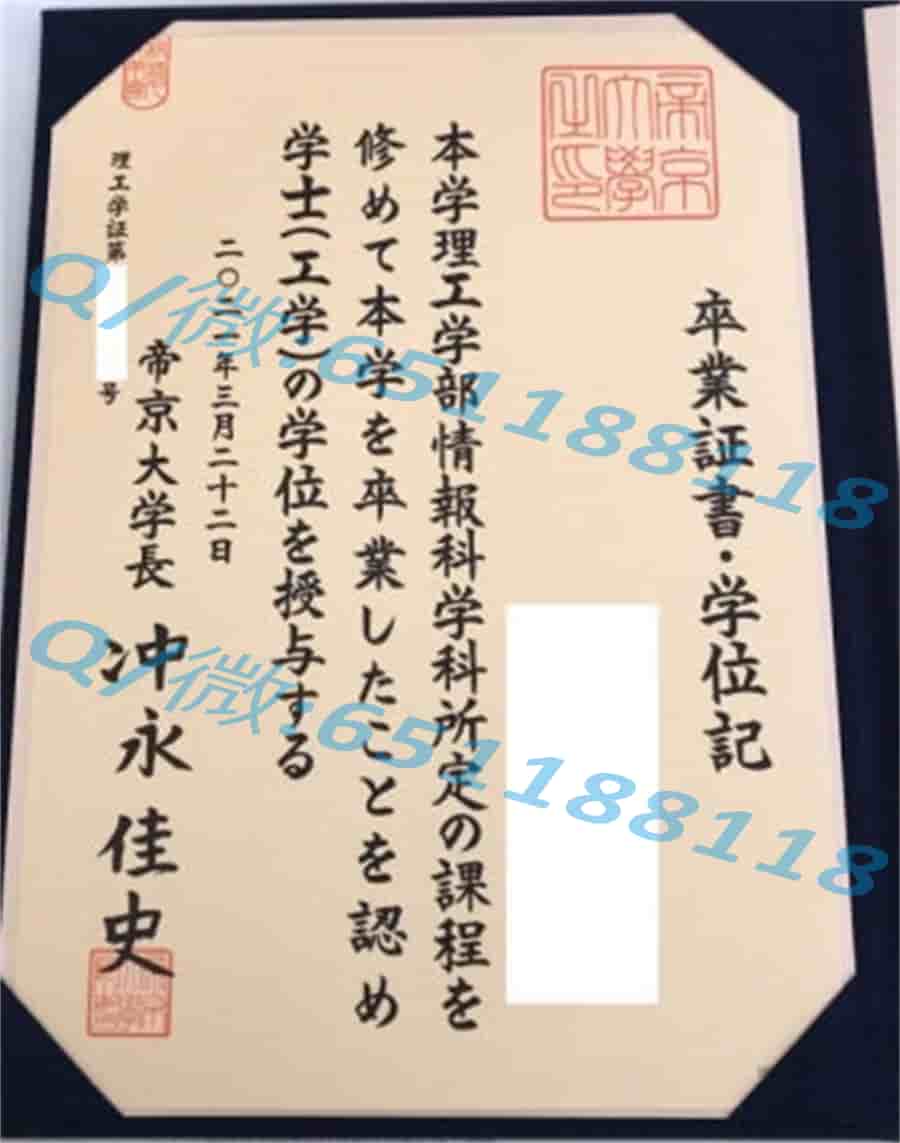 帝京
大學
之印
卒業証書・学位記
本学理工学部情報科学科所定の課程を
修めて本学を卒業したことを認め
学士(工学)の学位を授与する
二〇二二年三月二十二日
帝京大学長 冲永佳史
理工学証第 号
Q/微:651188118
Q/微:651188118